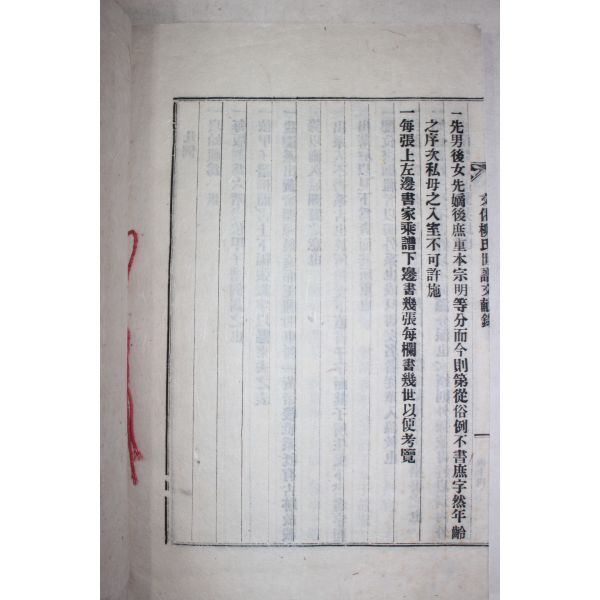 文化柳氏世譜文獻錄
一先男後女先嫡後庶重本宗明等分而今則第從俗例不書庶字然年齡
之序次私母之入室不可許施
一每張上左邊書家乘譜下邊書幾張每欄書幾世以便考覽